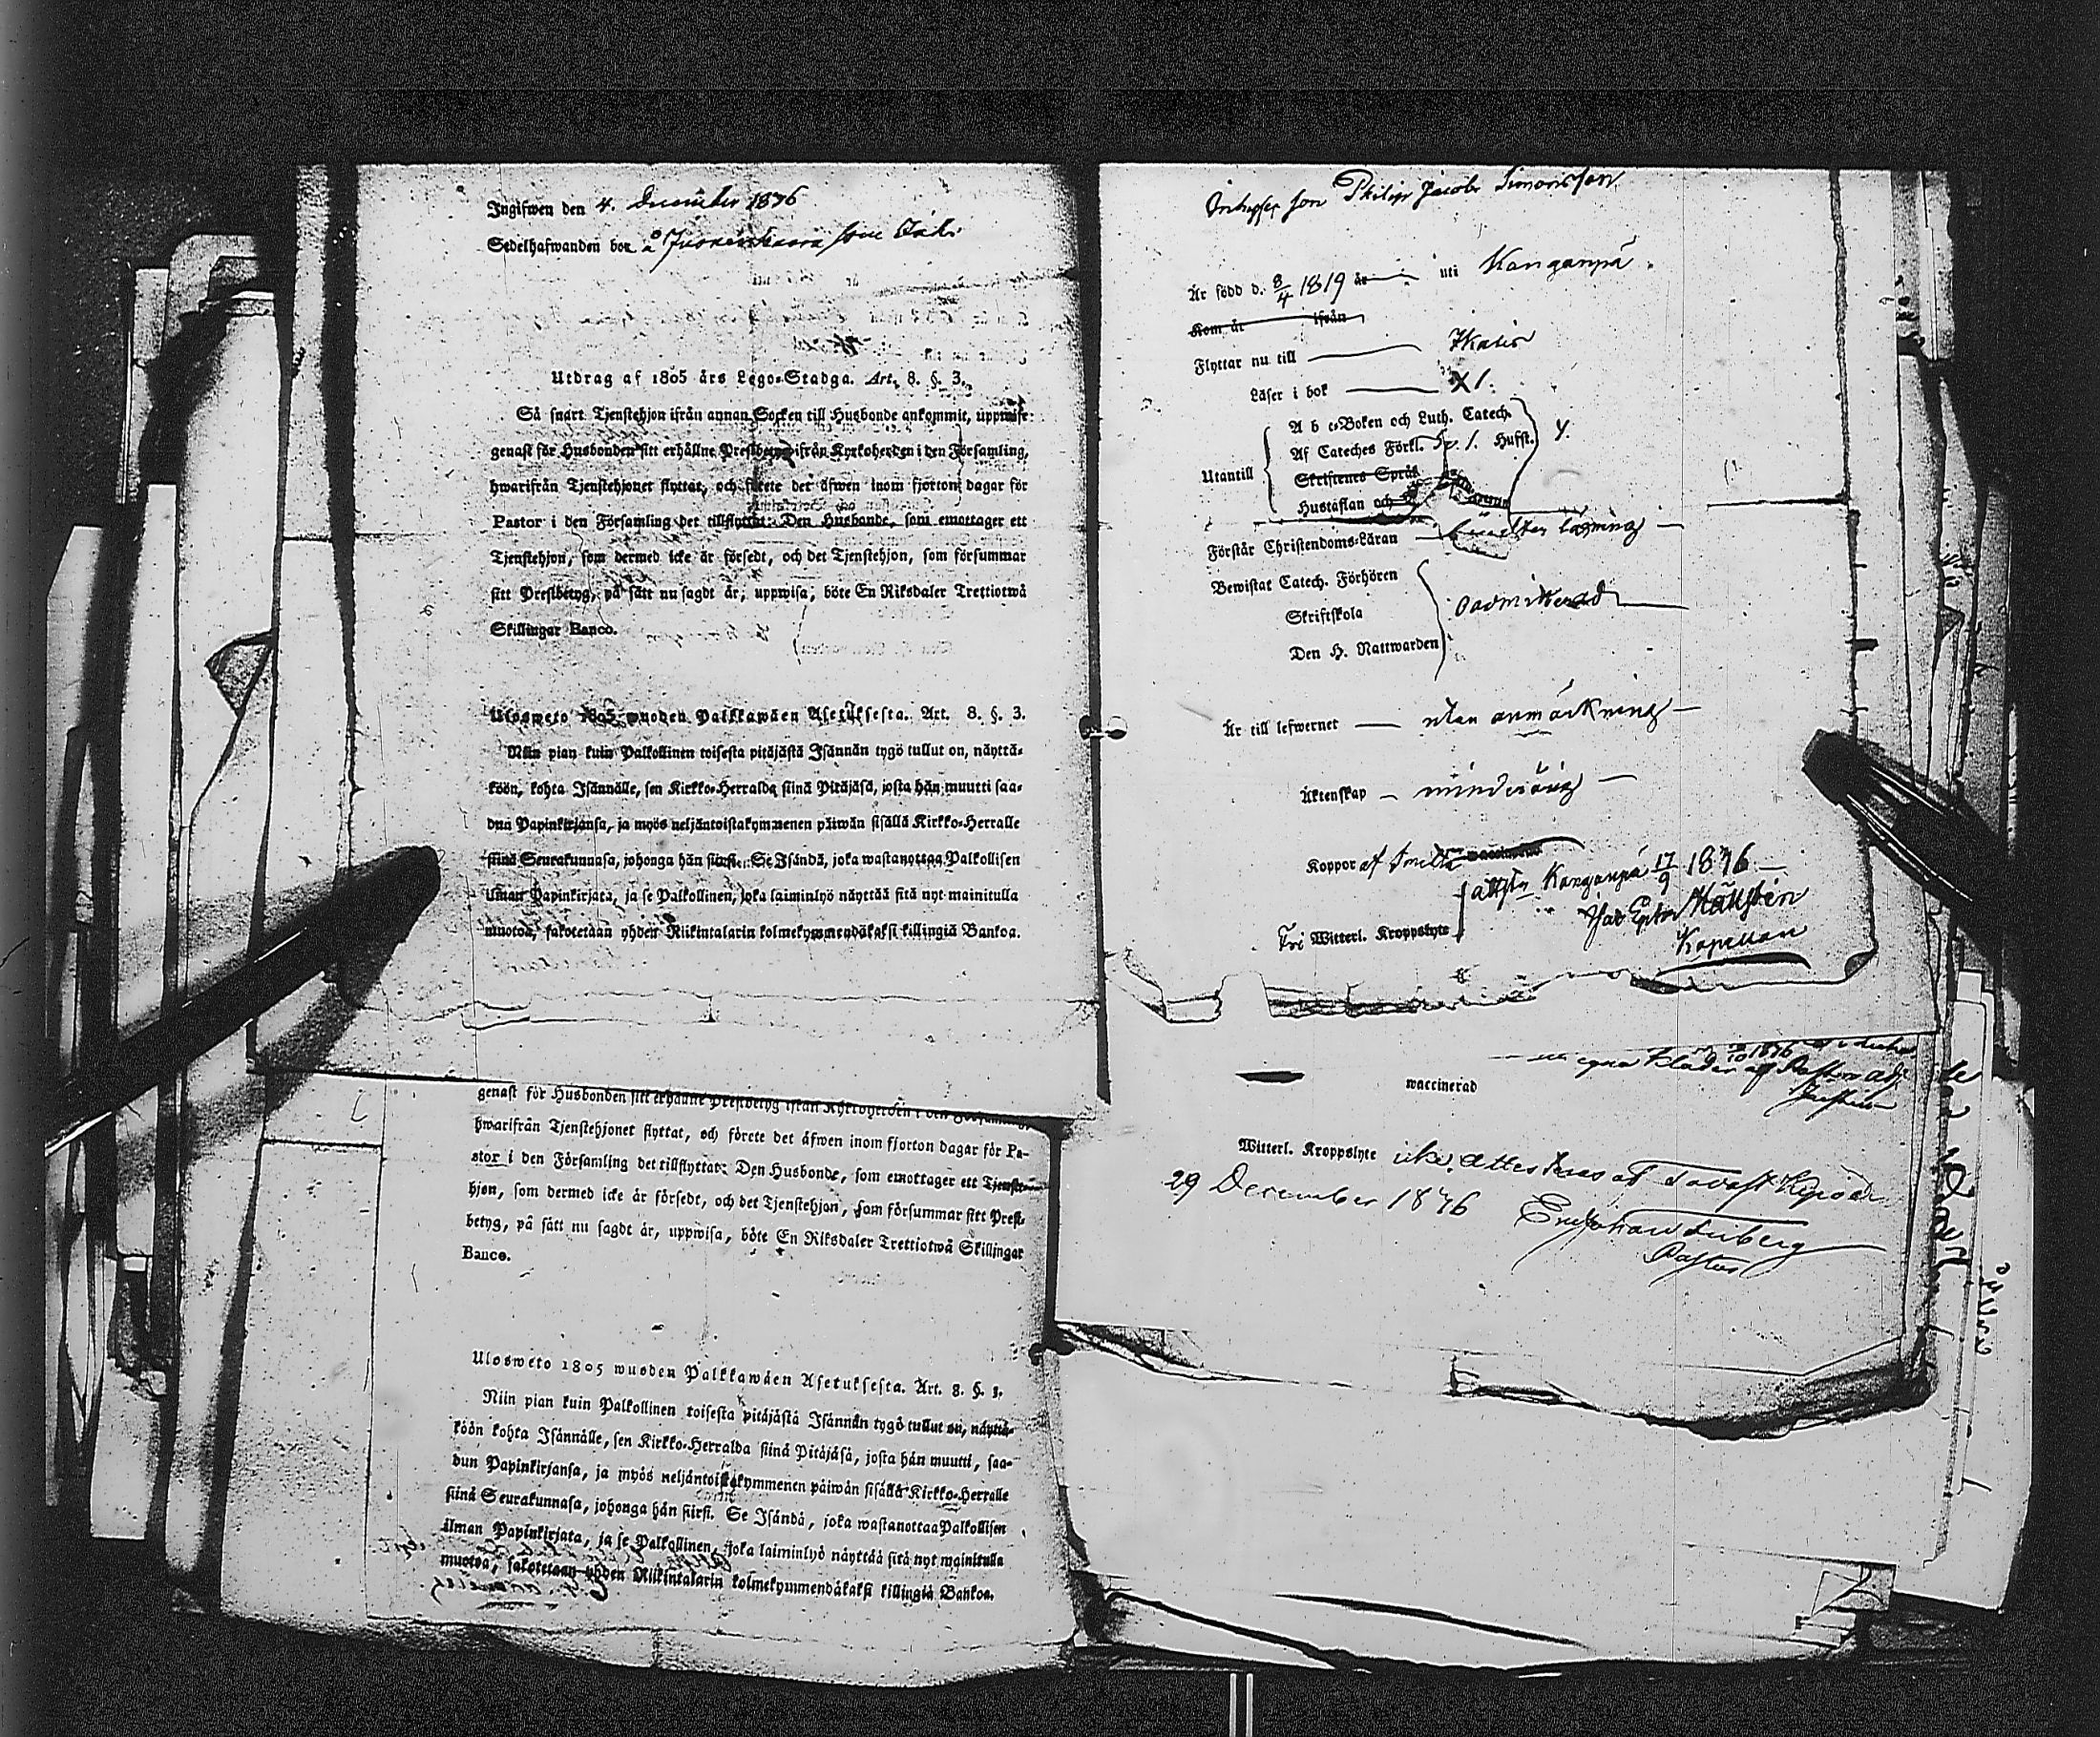 Ingifwen den 4. December 1836
Sedelhafwanden bor å som
Utdrag af 1805 års Lego-Stadga. Art. 8. §. 3.
Så snart Tjenstehjon ifrån annan Socken till Husbonde ankommit, uppwise
genast för Husbonden sitt erhållne Prestbetyg ifrån Kyrkoherden i den Församling,
hwarifrån Tjenstehjonet flyttat, och förete det äfwen inom fjorton dagar för
Pastor i den Församling det tillflyttat: Den Husbonde, som emottager ett
Tjenstehjon, som dermed icke är försedt, och det Tjenstehjon, som försummar
sitt Prestbetyg, på sätt nu sagdt är, uppwisa, böte En Riksdaler Trettiotwå
Skillingar Banco.
Ulosweto 1805 wuoden Palkkawäen Asetuksesta. Art. 8. §. 3.
Niin pian kuin Palkollinen toisesta pitäjästä Isännän tygö tullut on, näyttä-
köön, kohta Isännälle, sen Kirkko-Herralda siinä Pitäjäsä, josta hän muutti saa-
dun Papinkirjansa, ja myös neljäntoistakymmenen päiwän sisällä Kirkko-Herralle
siinä Seurakunnasa, johonga hän siirsi. Se Isändä, joka wastanottaa Palkollisen
ilman Papinkirjata, ja se Palkollinen, joka laiminlyö näyttää sitä nyt mainitulla
muotoa, sakotetaan yhden Riikintalarin kolmekymmendäkaksi killingiä Bankoa.
genast för Husbonden sitt erhållne Prestbetyg ifrån Kyrkoherden i den Församling,
hwarifrån Tjenstehjonet flyttat, och förete det äfwen inom fjorton dagar för Pa-
stor i den Församling det tillflyttat: Den Husbonde, som emottager ett Tjenste-
hjon, som dermed icke är försedt, och det Tjenstehjon, som försummar sitt Prest-
betyg, på sätt nu sagdt är, uppwisa, böte En Riksdaler Trettiotwå Skillingar
Banco.
Ulosweto 1805 wuoden Palkkawäen Asetuksesta. Art. 8. §. 3.
Niin pian kuin Palkollinen toisesta pitäjästä Isännän tygö tullut on, näyttä-
köön kohta Isännälle, sen Kirkko-Herralda siinä Pitäjäsä, josta hän muutti, saa-
dun Papinkirjansa, ja myös neljäntoistakymmenen päiwän sisällä Kirkko-Herralle
siinä Seurakunnasa, johonga hän siirsi. Se Isändä, joka wastanottaa Palkollisen
ilman Papinkirjata, ja se Palkollinen, joka laiminlyö näyttää sitä nyt mainitulla
muotoa, sakotetaan yhden Riikintalarin kolmekymmendäkaksi killingiä Bankoa.
son Philip Jacob Simonsson
Är född d. 8/4 1819 år uti Kanganpä.
Kom år ifrån
Flyttar nu till Ikalis
Läser i bok X 1.
A b c-Boken och Luth. Catech.
Af Cateches Förkl. Sp. 1. Husst. y.
Utantill
Skriftenes Språk
Hustaflan och
Förstår Christendoms-Läran läsning
Bewistat Catech. Förhören
Skriftskola oadmitterad
Den H. Nattwarden
Är till lefwernet utan anmärkning
Äktenskap minderårig
Koppor af waccinerad
attest. Kanganpä 17/9 1836
Fri Witterl. Kroppslyte
Hällsten
Kapellan
egna kläder af Pastor adj.
waccinerad
Witterl. Kroppslyte icke. attesteras af Tavast Kyro den
29 December 1836
Pastor